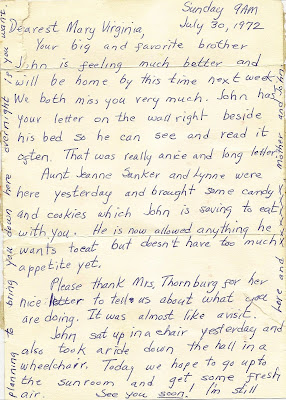 Sunday 9AM
July 30, 1972
Dearest Mary Virginia,
Your big and favorite brother
John is feeling much better and
will be home by this time next week.
We both miss you very much. John has
your letter on the wall right beside
his bed so he can see and read it
often. That was really a nice and long letter.
Aunt Jeanne Sanker and Lynne were
here yesterday and brought some candy
and cookies which John is saving to eat
with you. He is now allowed anything he
wants to eat but doesn't have too much
appetite yet.
Please thank Mrs. Thornburg for her
nice letter to tell us about what you
are doing. It was almost like a visit.
John sat up in a chair yesterday and
also took a ride down the hall in a
wheelchair. Today we hope to go up to
the sunroom and get some fresh
air. See you soon. I'm still
planning to bring you down here overnight is you want
here and
Mother and John